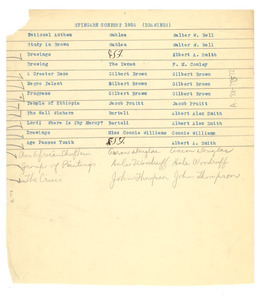 SPINGARN CONTEST 1924 (DRAWINGS)
National Anthem Walter W. Bell
Study in Brown Walter W. Bell
Drawings Albert A. Smith
Drawing The Damned
A Greater Race Gilbert Brown Gilbert Brown
Negro Talent Gilbert Brown Gilbert Brown
Progress Gilbert Brown Gilbert Brown
Temple of Ethiopia Jacob Pruitt Jacob Pruitt
The Bartell Albert Alex Smith
Lord! Where Is Thy Mercy? Bartell Albert Alex Smith
Drawings Miss Connie Williams Connie Williams
Youth Albert A. Smith
An African Chieftain Aaron Douglas Aaron Douglas
Group of Paintings Hale Woodruff Hale Woodruff
The Cross John Thompson John Thompson